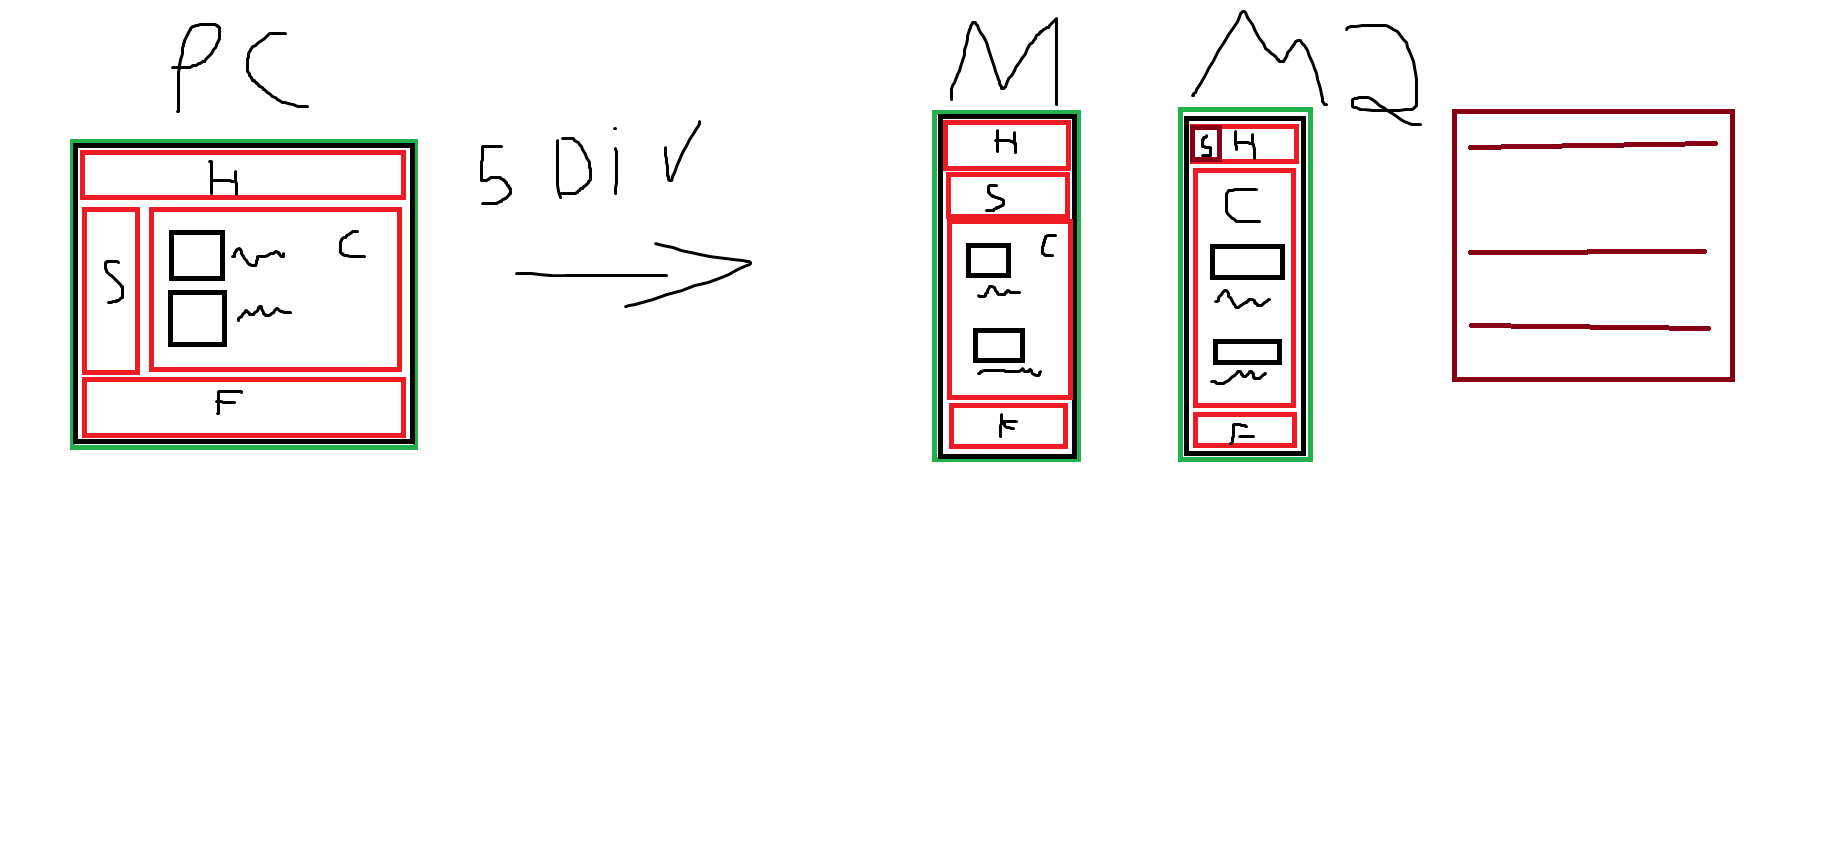 PC
H
S
C
F
5 Div
M
H
S
C
F
M2
S H
C
F